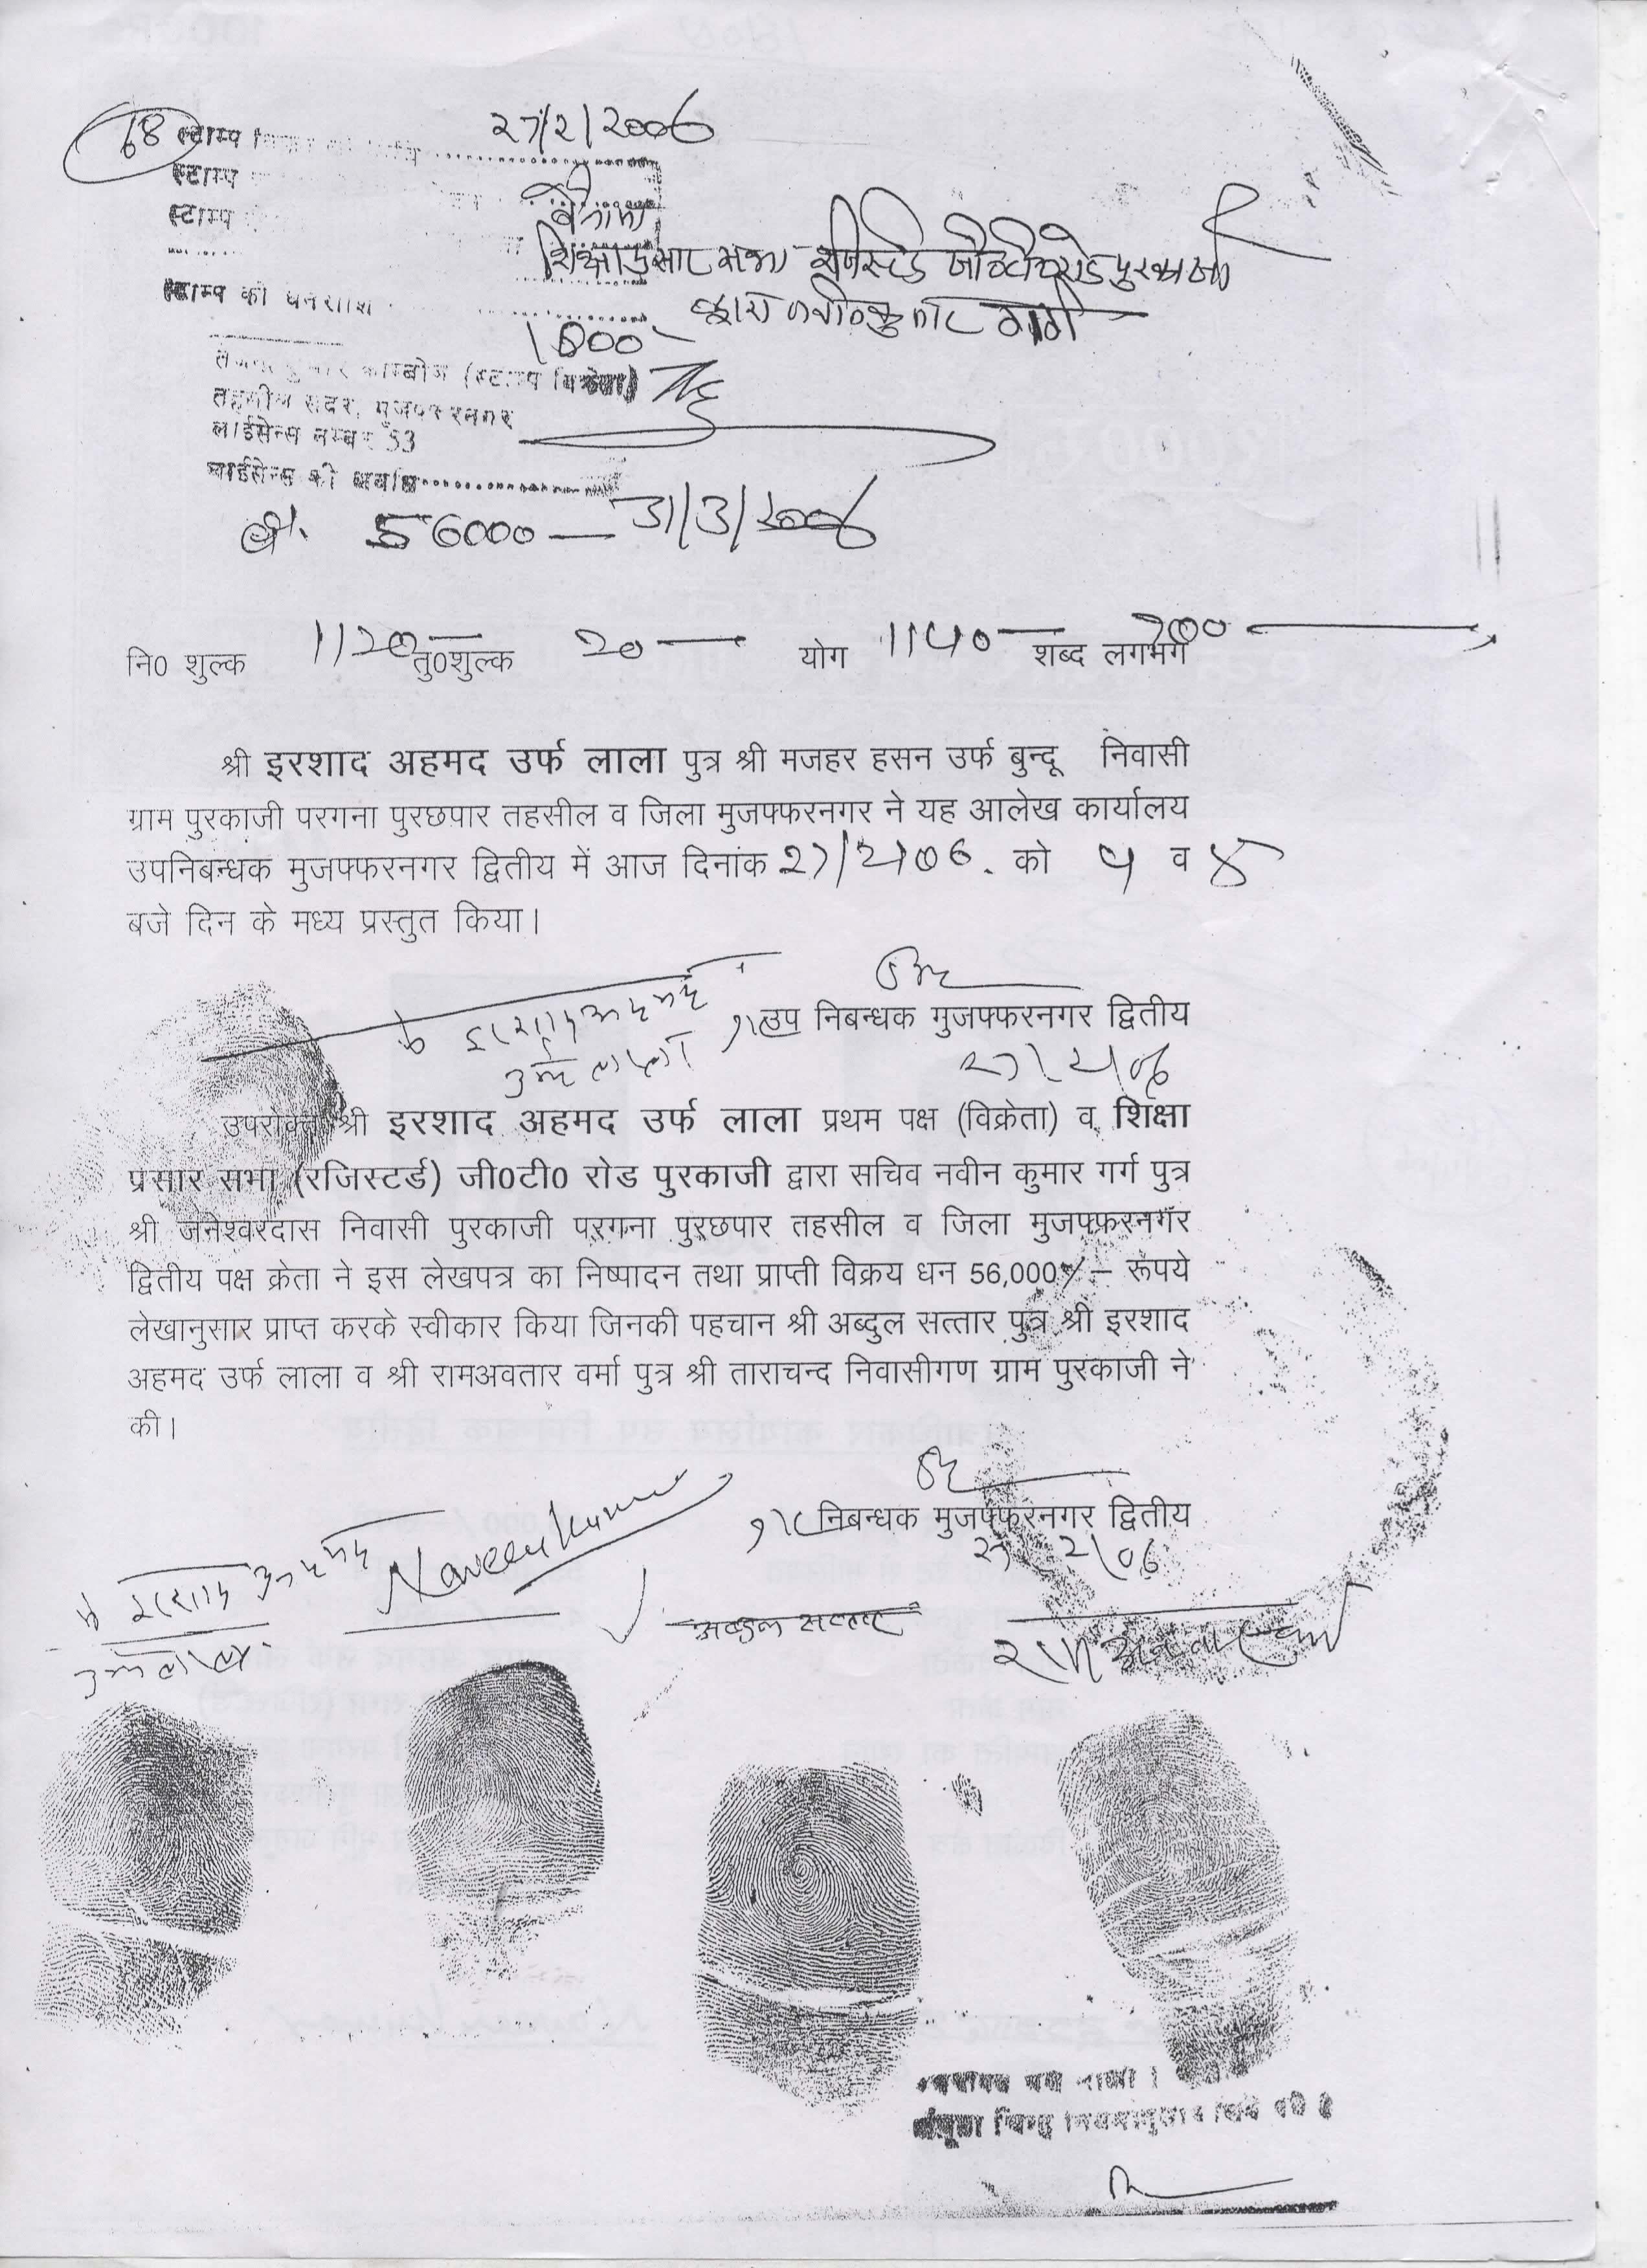 68 स्टाम्प 27/2/2006
स्टाम्प
स्टाम्प बैनामा
शिक्षा प्रसार सभा रजिस्टर्ड जी०टी०रोड पुरकाजी
स्टाम्प की धनराशि द्वारा नवीन कुमार गर्ग
1000-
काम्बोज (स्टाम्प विक्रेता)
तहसील सदर, मुजफ्फरनगर
लाईसेन्स नम्बर 53
लाईसेन्स की अवधि 31/3/2006
56000—
नि0 शुल्क 1120— तु0शुल्क 20— योग 1140— शब्द लगभग 700
श्री इरशाद अहमद उर्फ लाला पुत्र श्री मजहर हसन उर्फ बुन्दू निवासी
ग्राम पुरकाजी परगना पुरछपार तहसील व जिला मुजफ्फरनगर ने यह आलेख कार्यालय
उपनिबन्धक मुजफ्फरनगर द्वितीय में आज दिनांक 27/2/06. को 4 व 5
बजे दिन के मध्य प्रस्तुत किया।
इरशाद अहमद
उर्फ लाला
उप निबन्धक मुजफ्फरनगर द्वितीय
27/2/06
उपरोक्त श्री इरशाद अहमद उर्फ लाला प्रथम पक्ष (विक्रेता) व शिक्षा
प्रसार सभा (रजिस्टर्ड) जी0टी0 रोड पुरकाजी द्वारा सचिव नवीन कुमार गर्ग पुत्र
श्री जनेश्वरदास निवासी पुरकाजी परगना पुरछपार तहसील व जिला मुजफ्फरनगर
द्वितीय पक्ष क्रेता ने इस लेखपत्र का निष्पादन तथा प्राप्ती विक्रय धन 56,000/- रूपये
लेखानुसार प्राप्त करके स्वीकार किया जिनकी पहचान श्री अब्दुल सत्तार पुत्र श्री इरशाद
अहमद उर्फ लाला व श्री रामअवतार वर्मा पुत्र श्री ताराचन्द निवासीगण ग्राम पुरकाजी ने
की।
निबन्धक मुजफ्फरनगर द्वितीय
27/2/06
इरशाद अहमद Naveen Kumar
उर्फ लाला अब्दुल सत्तार रामअवतार वर्मा
चिन्ह नियमानुसार लिये गये है